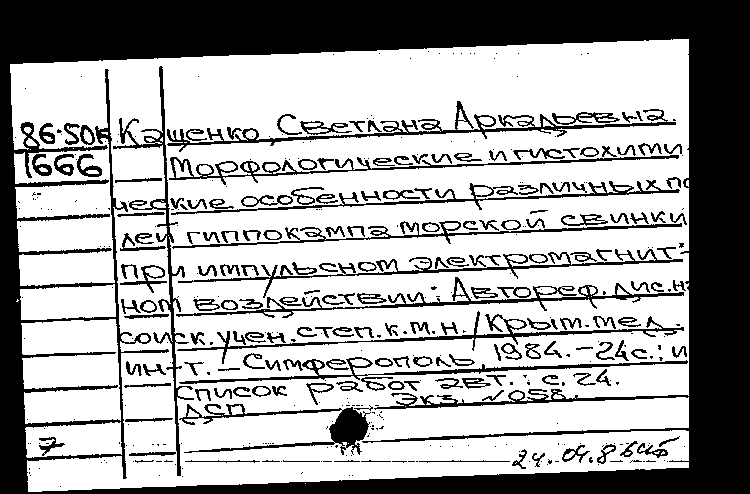 86-50к Кащенко, Светлана Аркадьевна.
1666 Морфологические и гистохими-
ческие особенности различных по
лей гиппокампа морской свинки
при импульсном электромагнит-
ном воздействии: Автореф. дис. н
соиск. учен. степ. к.м.н. / Крым. мед.
ин-т. – Симферополь, 1984. – 24 с.: и
Список работ авт.: с. 24.
ДСП Экз. №058.
7
24.04.86